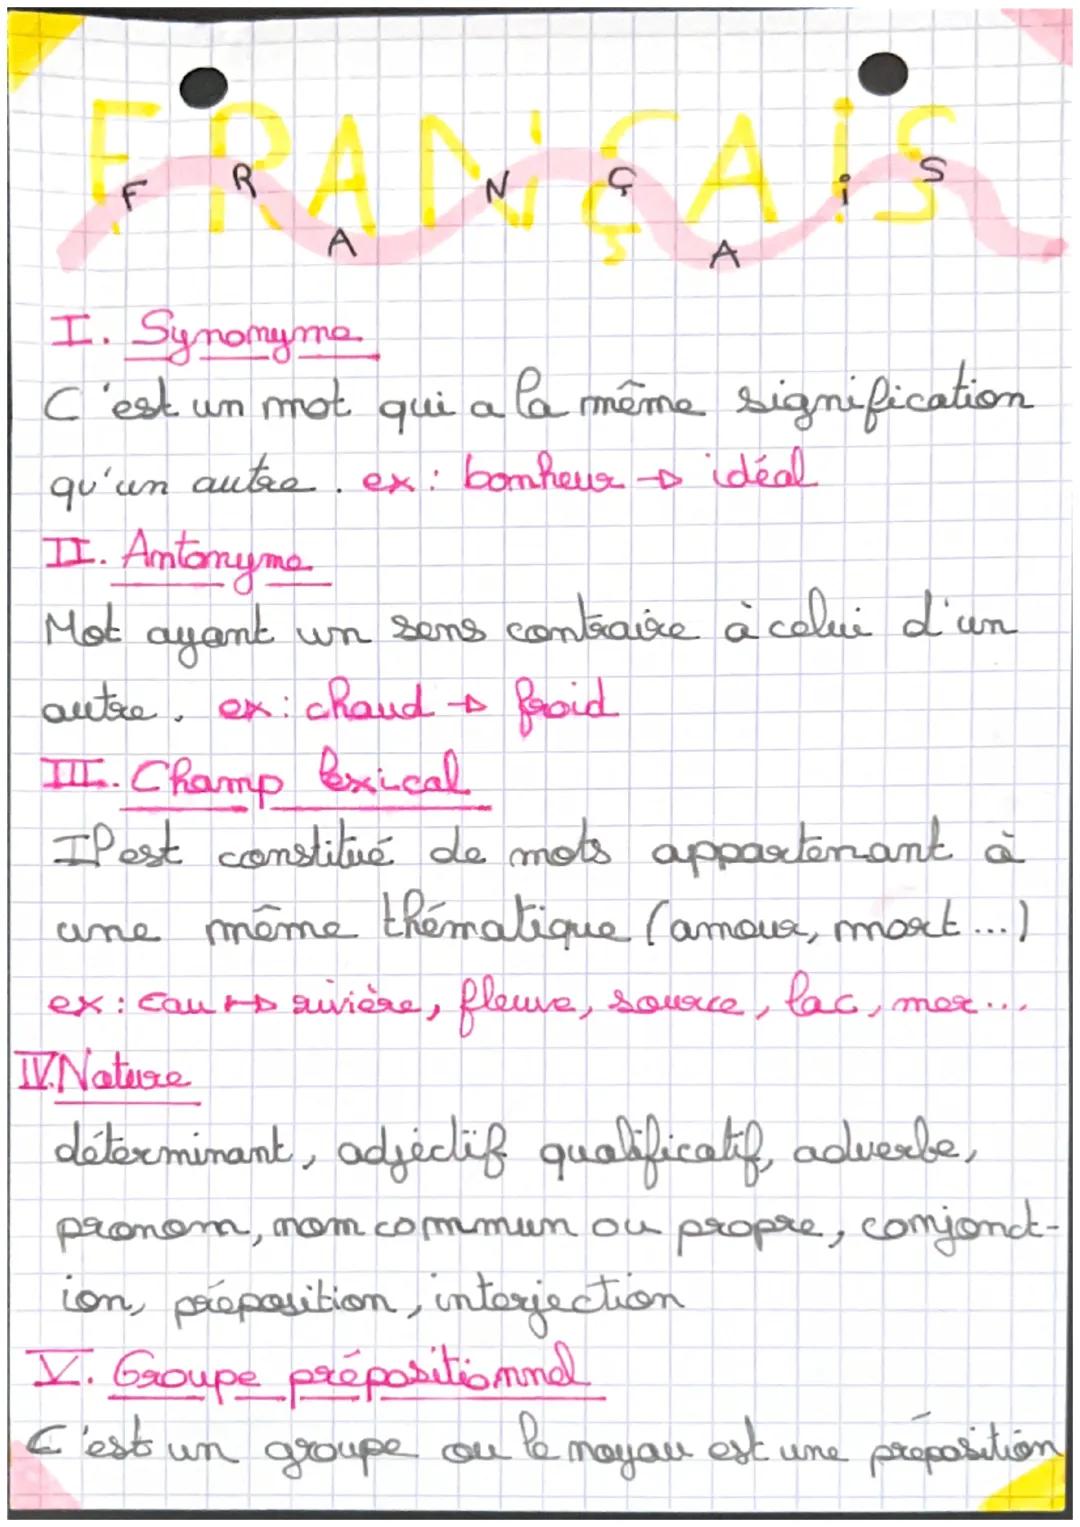 FRANÇAIS
FRANÇAiS
I. Synonyme
C'est un mot qui a la même signification
qu'un autre. ex: bonheur → idéal
II. Antonyme
Mot ayant un sens contraire à celui d'un
autre. ex: chaud → froid
III. Champ lexical
Il est constitué de mots appartenant à
une même thématique (amour, mort...)
ex: eau → rivière, fleuve, source, lac, mer...
IV. Nature
déterminant, adjéctif qualificatif, adverbe,
pronom, nom commun ou propre, conjonct-
ion, préposition, interjection
V. Groupe prépositionnel
C'est un groupe ou le noyau est une préposition